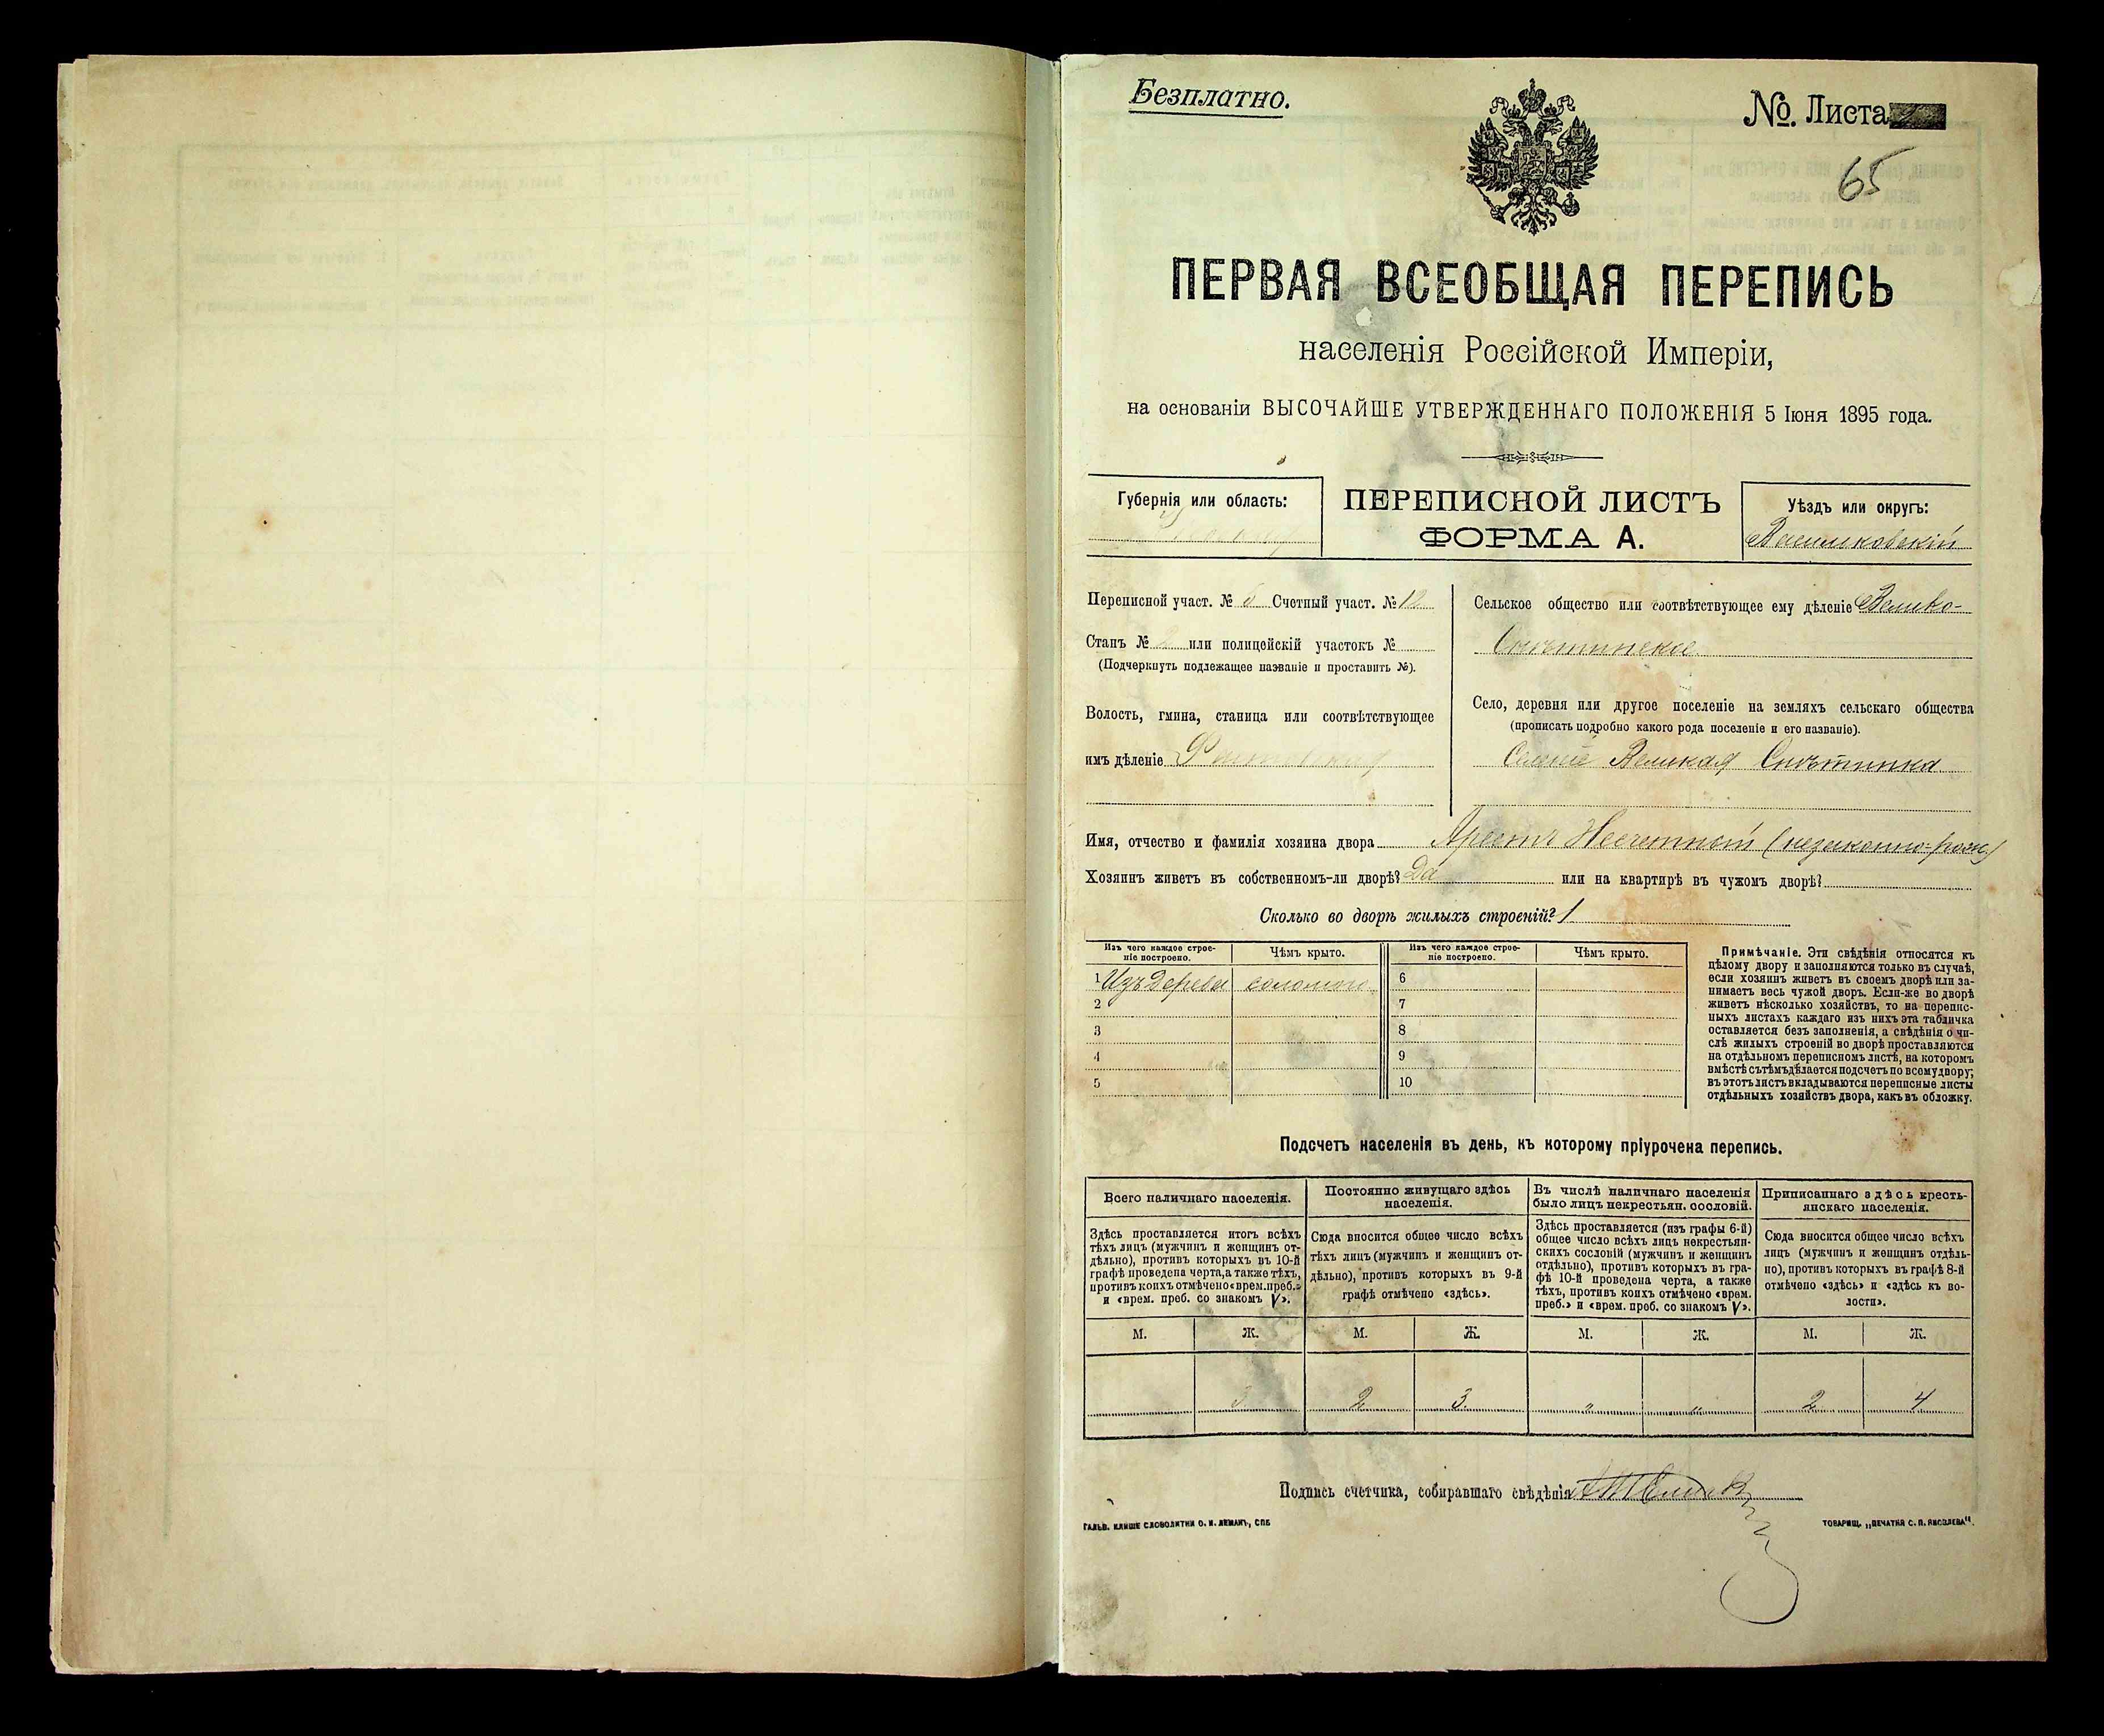 Безплатно.
№. Листа
65
ПЕРВАЯ ВСЕОБЩАЯ ПЕРЕПИСЬ
населенія Россійской Имперіи,
на основаніи ВЫСОЧАЙШЕ УТВЕРЖДЕННАГО ПОЛОЖЕНІЯ 5 Іюня 1895 года.
Губернія или область:
ПЕРЕПИСНОЙ ЛИСТЪ
ФОРМА А.
Уѣздъ или округъ:
Васильковскій
Переписной участ. № 6 Счетный участ. № 12
Станъ № 2 или полицейскій участокъ №
(Подчеркнуть подлежащее названіе и проставить №).
Волость, гмина, станица или соотвѣтствующее
имъ дѣленіе Фастовская
Сельское общество или соотвѣтствующее ему дѣленіе Велико-
Снѣтинское
Село, деревня или другое поселеніе на земляхъ сельскаго общества
(прописать подробно какого рода поселеніе и его названіе).
Великая Снѣтинка
Имя, отчество и фамилія хозяина двора (незаконно-рож.)
Хозяинъ живетъ въ собственномъ-ли дворѣ? Да или на квартирѣ въ чужомъ дворѣ?
Сколько во дворѣ жилыхъ строеній? 1
Изъ чего каждое строе-
ніе построено.
Чѣмъ крыто.
Изъ чего каждое строе-
ніе построено.
Чѣмъ крыто.
1 Изъ дерева соломою 6
2 7
3 8
4 9
5 10
Примѣчаніе. Эти свѣдѣнія относятся къ
цѣлому двору и заполняются только въ случаѣ,
если хозяинъ живетъ въ своемъ дворѣ или за-
нимаетъ весь чужой дворъ. Если-же во дворѣ
живетъ нѣсколько хозяйствъ, то на перепис-
ныхъ листахъ каждаго изъ нихъ эта табличка
оставляется безъ заполненія, а свѣдѣнія о чи-
слѣ жилыхъ строеній во дворѣ проставляются
на отдѣльномъ переписномъ листѣ, на которомъ
вмѣстѣ съ тѣмъ дѣлается подсчетъ по всему двору;
въ этотъ листъ вкладываются переписные листы
отдѣльныхъ хозяйствъ двора, какъ въ обложку.
Подсчетъ населенія въ день, къ которому пріурочена перепись.
Всего наличнаго населенія.
Здѣсь проставляется итогъ всѣхъ
тѣхъ лицъ (мужчинъ и женщинъ от-
дѣльно), противъ которыхъ въ 10-й
графѣ проведена черта, а также тѣхъ,
противъ коихъ отмѣчено «врем. преб.»
и «врем. преб. со знакомъ V».
Постоянно живущаго здѣсь
населенія.
Сюда вносится общее число всѣхъ
тѣхъ лицъ (мужчинъ и женщинъ от-
дѣльно), противъ которыхъ въ 9-й
графѣ отмѣчено «здѣсь».
Въ числѣ наличнаго населенія
было лицъ некрестьян. сословій.
Здѣсь проставляется (изъ графы 6-й)
общее число всѣхъ лицъ некрестьян-
скихъ сословій (мужчинъ и женщинъ
отдѣльно), противъ которыхъ въ гра-
фѣ 10-й проведена черта, а также
тѣхъ, противъ коихъ отмѣчено «врем.
преб.» и «врем. преб. со знакомъ V».
Приписаннаго здѣсь кресть-
янскаго населенія.
Сюда вносится общее число всѣхъ
лицъ (мужчинъ и женщинъ отдѣль-
но), противъ которыхъ въ графѣ 8-й
отмѣчено «здѣсь» и «здѣсь къ во-
лости».
М. Ж. М. Ж. М. Ж. М. Ж.
3 2 3 " " 2 4
Подпись счетчика, собиравшаго свѣдѣнія
ГАЛЬВ. КЛИШЕ СЛОВОЛИТНИ О. И. ЛЕМАНЪ, СПБ
ТОВАРИЩ. „ПЕЧАТНЯ С. П. ЯКОВЛЕВА".